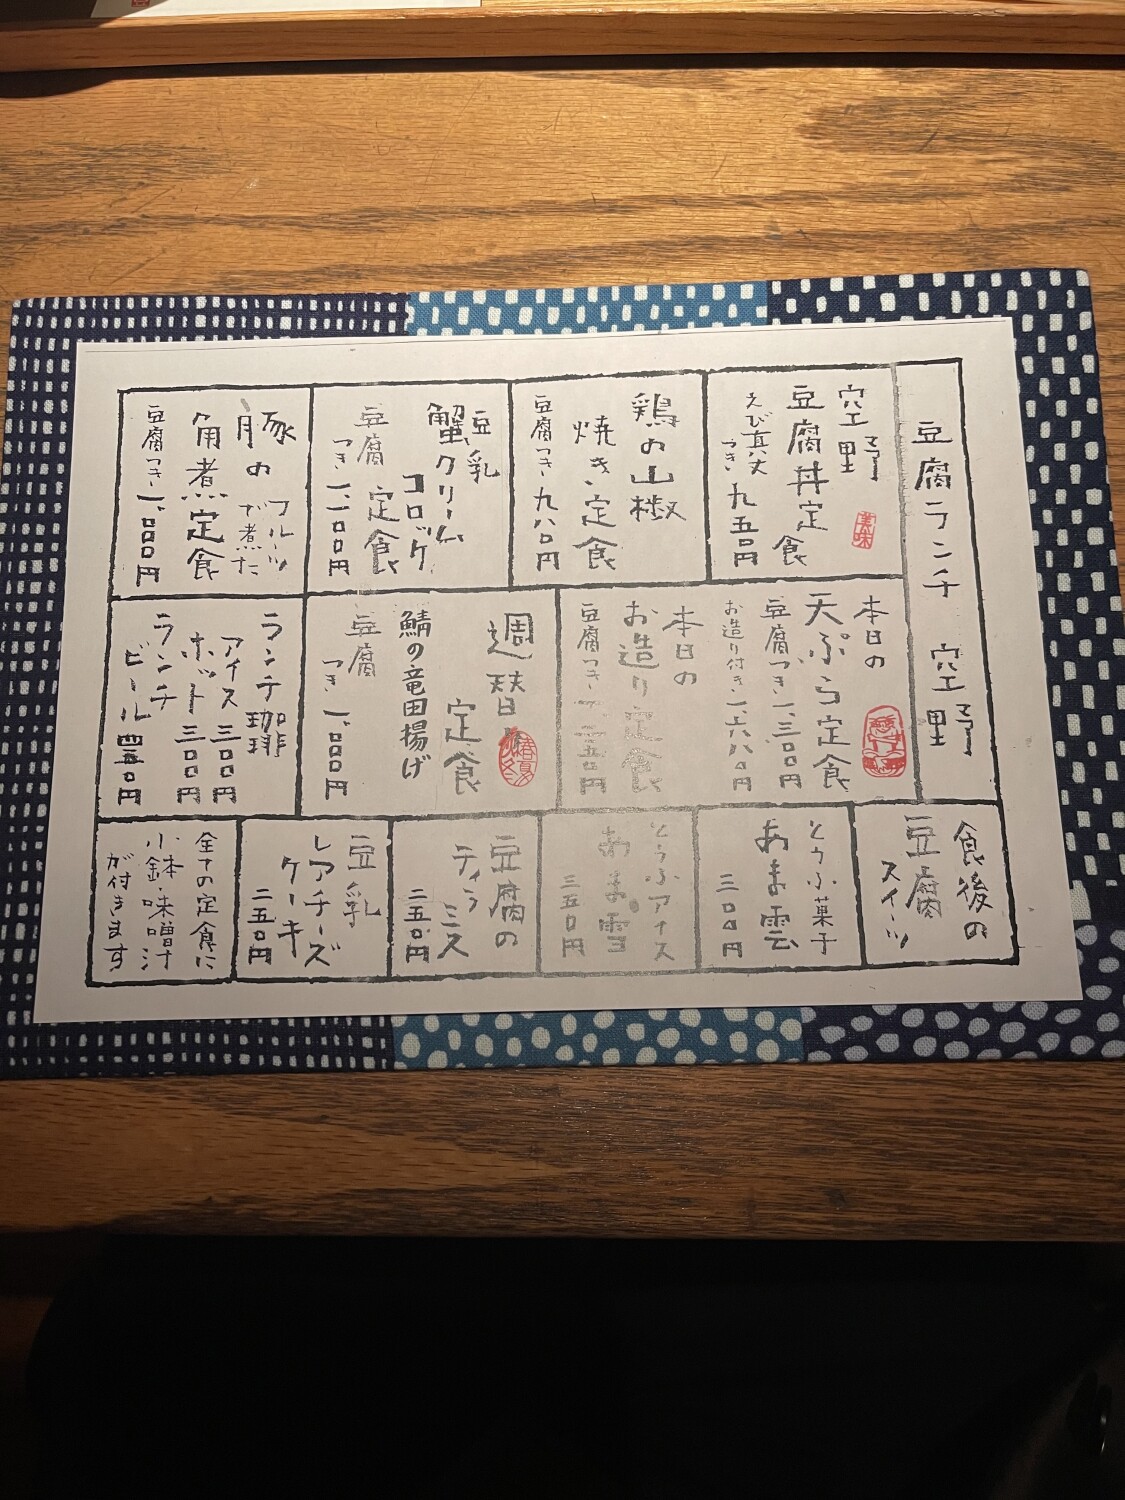 豆腐ランチ 空野
空野
豆腐丼定食
えび真丈
つき 九五〇円
美味
鶏の山椒
焼き定食
豆腐つき 九八〇円
豆乳
蟹クリーム
コロッケ
定食
豆腐
つき 一、一〇〇円
豚の
フルーツで煮た
角煮定食
豆腐つき 一、〇〇〇円
本日の
天ぷら定食
豆腐つき 一、三〇〇円
お造り付き 一、六八〇円
本日の
お造り定食
豆腐つき
週替り
定食
春夏
鯖の竜田揚げ
豆腐
つき 一、〇〇〇円
ランチ珈琲
アイス 三〇〇円
ホット 三〇〇円
ランチ
ビール 四五〇円
食後の
豆腐
スイーツ
とうふ菓子
あま雲
三〇〇円
とうふアイス
あま雪
二五〇円
豆腐の
ティラミス
二五〇円
豆乳
レアチーズ
ケーキ
二五〇円
全ての定食に
小鉢・味噌汁
が付きます